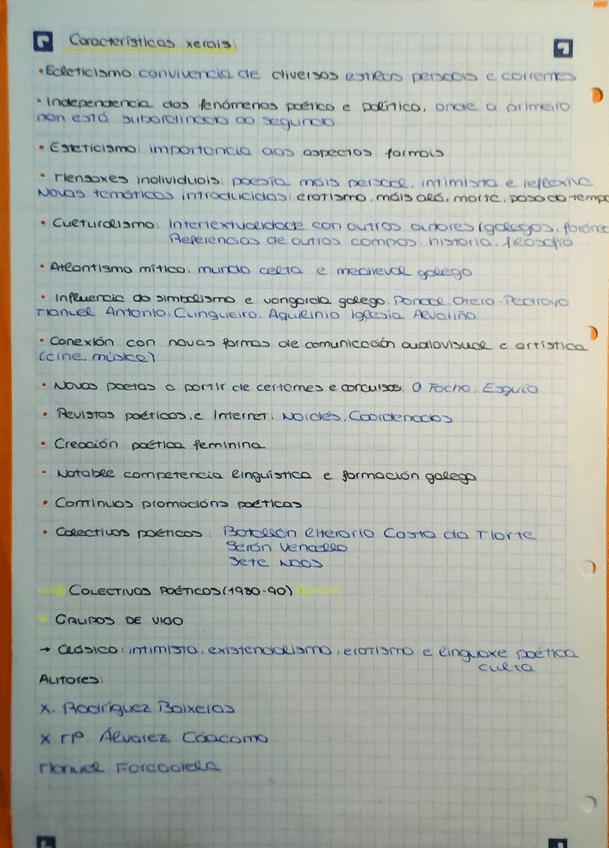 Características xerais:
• Eclecticismo: convivencia de diversos estilos persoais e correntes
• Independencia dos fenómenos poético e político, onde o primeiro
non está subordinado ao segundo
• Esteticismo: importancia aos aspectos formais
• Mensaxes individuais: poesía máis persoal, intimista e reflexiva
Novas temáticas introducidas: erotismo, máis alá, morte, paso do tempo
• Culturalismo: Intertextualidade con outros autores (galegos,
Referencias de outros campos: historia, filosofía...
• Atlantismo mítico: mundo celta e medieval galego
• Influencia do simbolismo e vangarda galega: Pondal, Otero-Pedrayo
Manuel Antonio, Cunqueiro, Aquilinio Iglesia Alvaliño
• Conexión con novas formas de comunicación audiovisual e artística
(cine, música)
• Novos poetas a partir de certames e concursos: O Facho, Esquío
• Revistas poéticas, e Internet: Nordés, Coordenadas
• Creación poética feminina
• Notable competencia lingüística e formación galega
• Continuas promocións poéticas
• Colectivos poéticos: Batallón literario Costa da Morte
Serán Vencello
Sete Naos
COLECTIVOS POÉTICOS (1980-90)
GRUPOS DE VIGO
→ Clásico: intimista, existencialismo, erotismo e linguaxe poética
culta
Autores:
X. Rodríguez Baixeras
X Mª. Álvarez Cáccamo
Manuel Forcadela